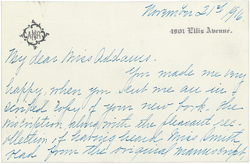 November 21st, 1916
4901 Ellis Avenue.
My dear Miss Addams.
You made me very
happy, when you sent me an in-
scribed copy of your new book. The
inscription along with the pleasant re-
collection, of having heard Miss Smith
read from the original manuscript